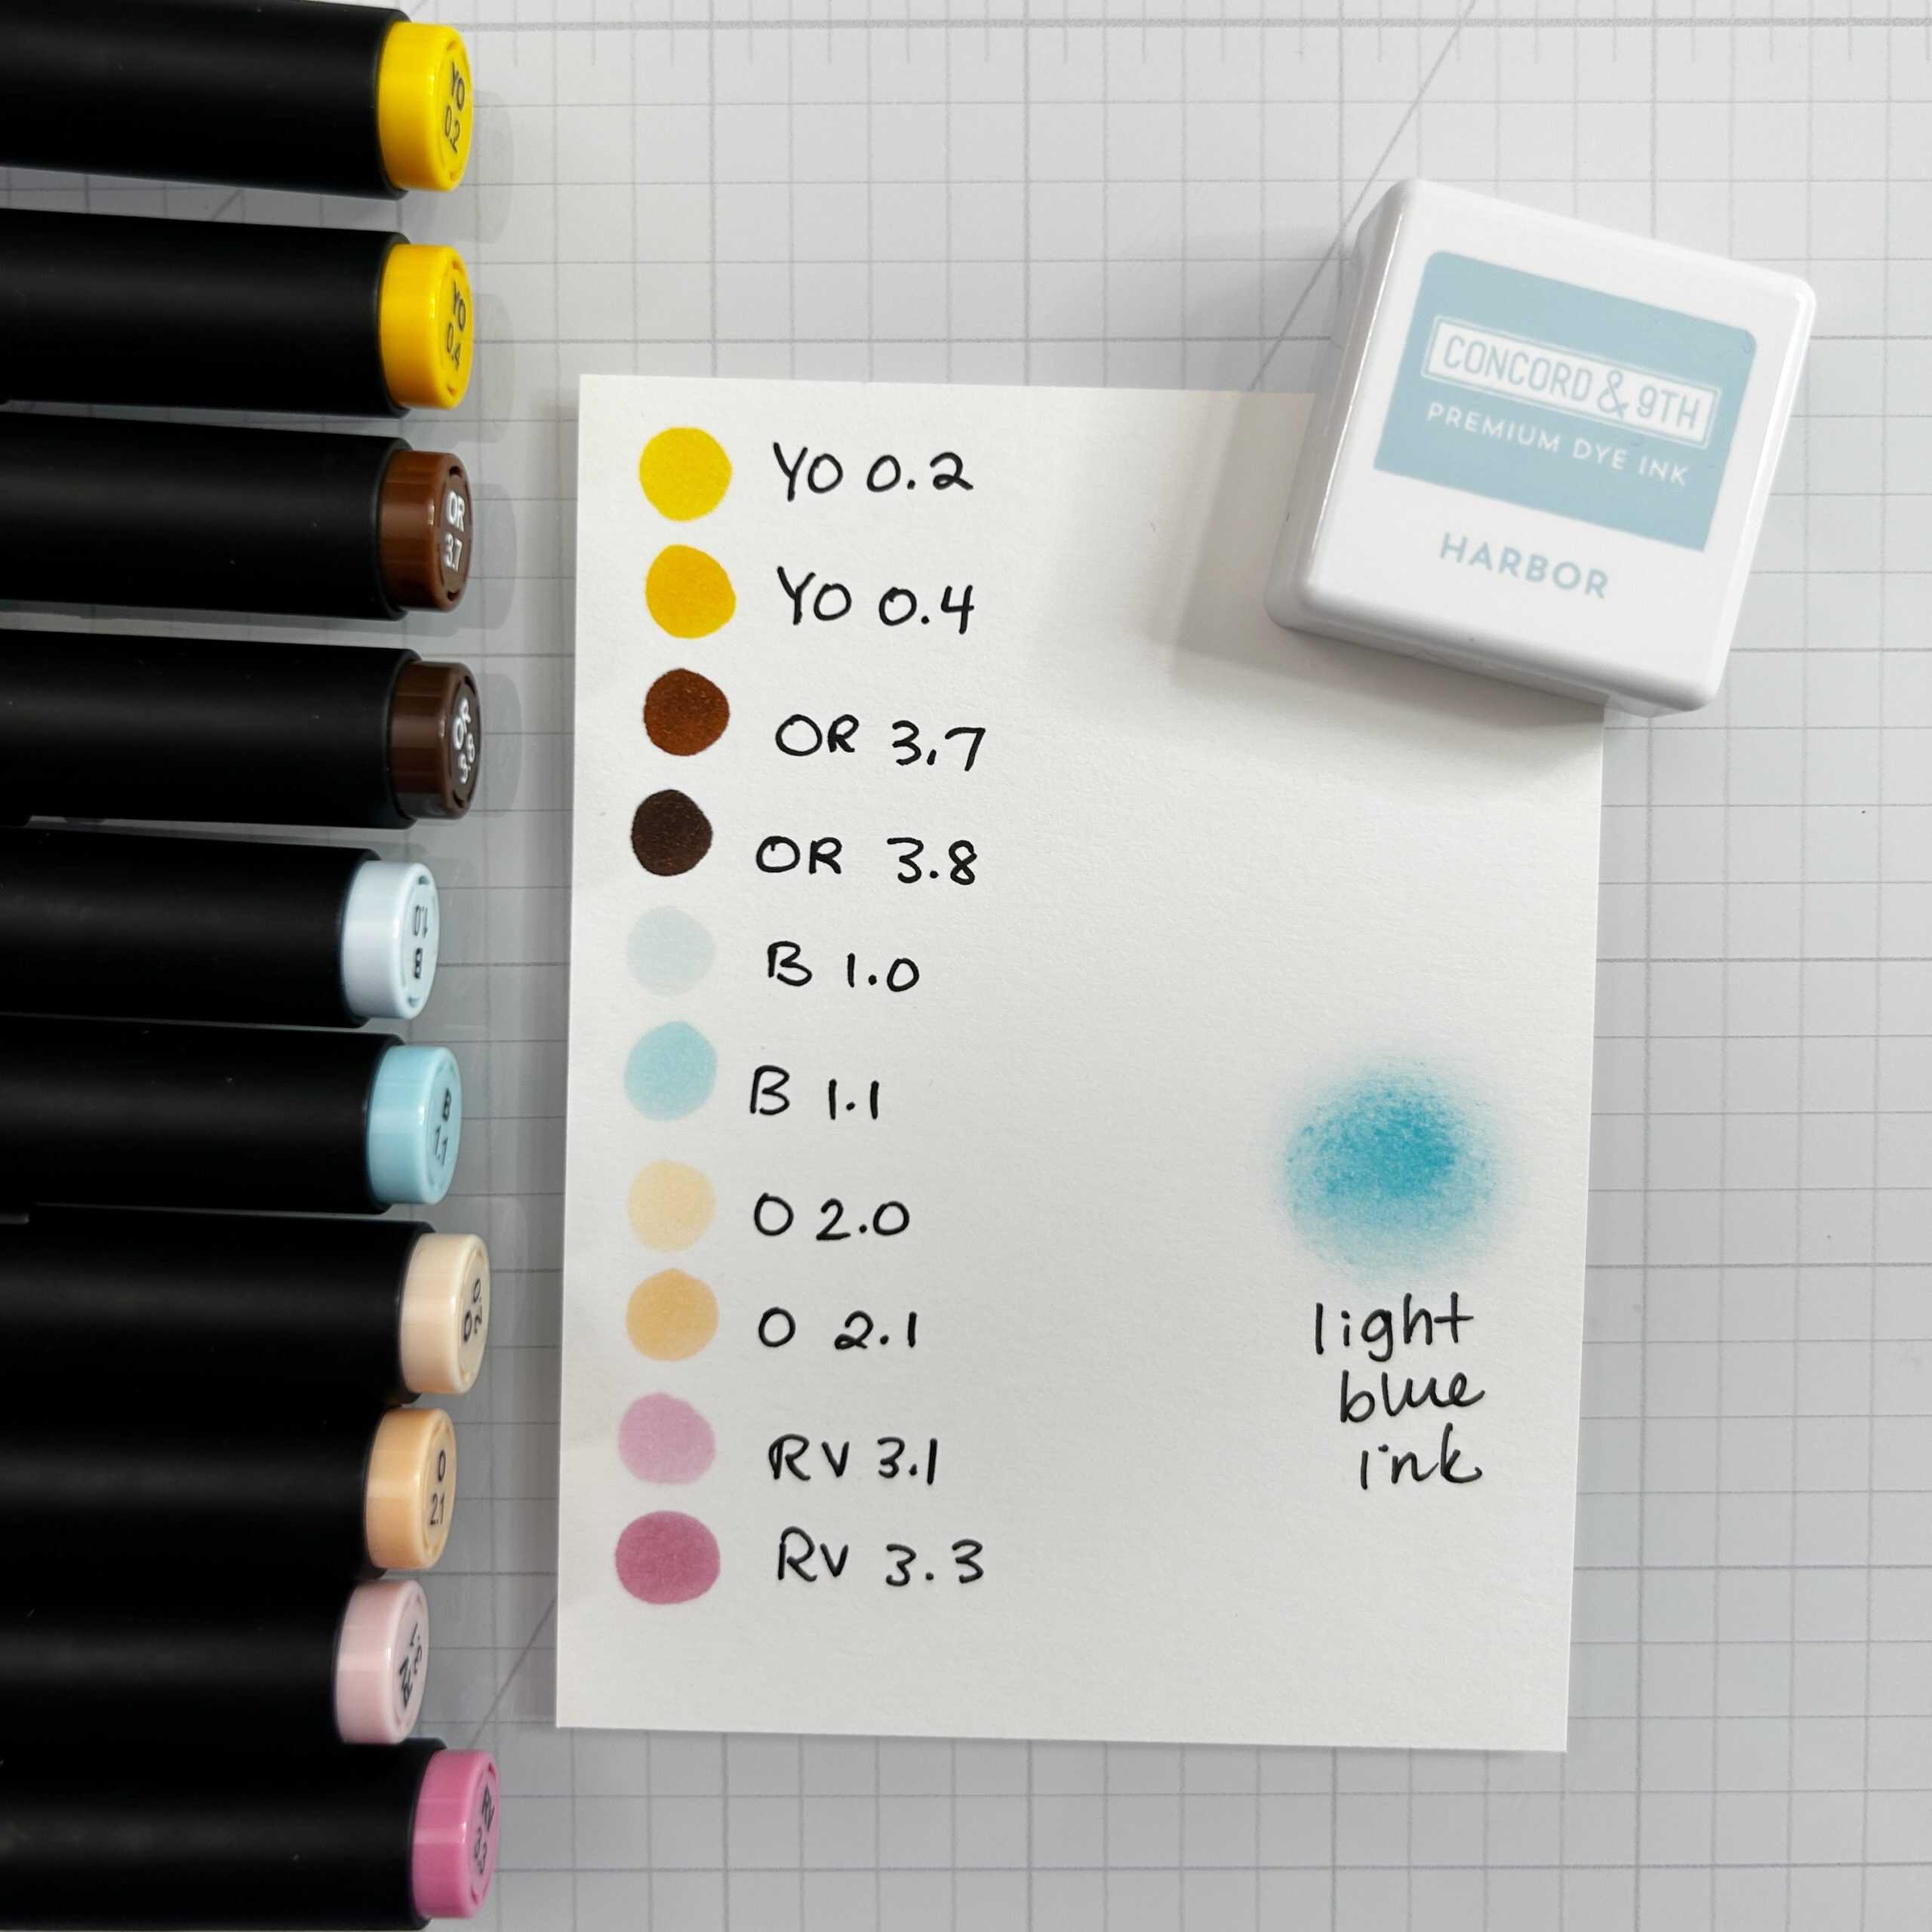 YO
0.2
YO
0.4
OR
3.7
OR
3.8
B
1.0
B
1.1
O
2.0
O
2.1
RV
3.1
RV
3.3
YO 0.2
YO 0.4
OR 3.7
OR 3.8
B 1.0
B 1.1
O 2.0
O 2.1
RV 3.1
RV 3.3
CONCORD & 9TH
PREMIUM DYE INK
HARBOR
light
blue
ink